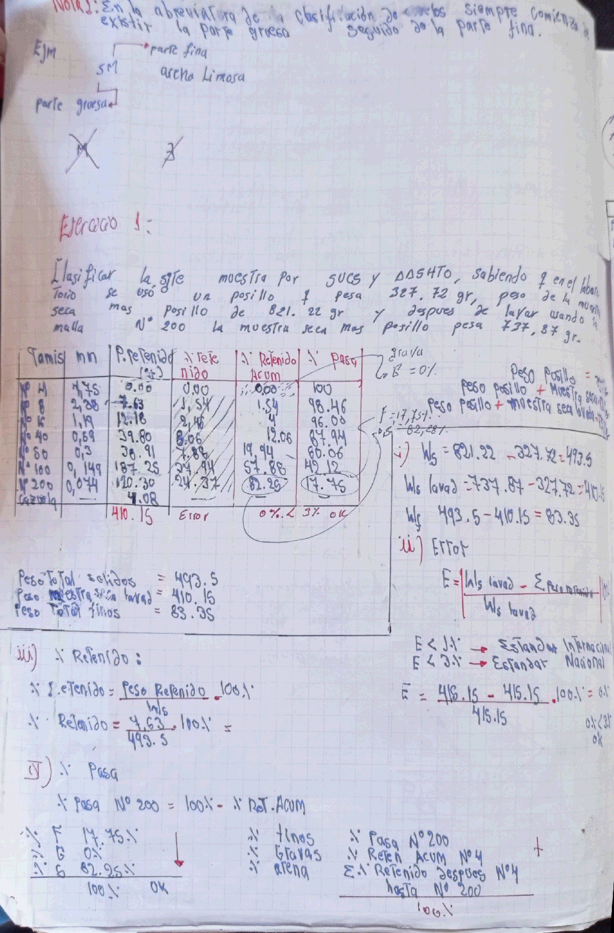 Nota: En la abreviatura de la clasificación de suelos siempre comienza
existir la parte gruesa seguido de la parte fina.
Ejm
parte fina
SM arena Limosa
parte gruesa
Ejercicio 1:
Clasificar la sgte muestra por SUCS y AASHTO, sabiendo q en el
se usó un posillo q pesa 327.72 gr, peso de la
seca mas posillo de 821.22 gr y despues de lavar usando la
malla N° 200 la muestra seca mas posillo pesa 737.87 gr.
Tamis mm P.retenido % Rete nido % Retenido Acum % Pasa
N° 4 4,75 0.00 0.00 0.00 100
N° 8 7.63 1.54 1.54 98.46
N° 16 1,19 4 96.00
N° 40 0,59 39.80 8.06 12.06 87.94
N° 50 0,3 19.94 80.06
N° 100 0,149 187.25 57.88 42.12
N° 200 0,074 120.30 24.37 82.25 17.75
Cazuela 4.08
410.15 Error 0% < 3% OK
grava
G = 0%
peso posillo =
peso posillo + muestra seca
peso posillo + muestra seca
i) Ws = 821.22 - 327.72 = 493.5
Ws lavad = 737.87 - 327.72 =
Ws 493.5 - 410.15 = 83.35
ii) Error
E = Ws lavad - Σ
Ws lavad
E < 1% → Estandar Internacional
E < 3% → Estandar Nacional
E = 415.15 - 415.15 . 100% = 0%
415.15
0% < 3%
OK
Peso Total solidos = 493.5
Peso muestra seca lavad = 410.15
Peso Total finos = 83.35
iii) % Retenido:
% Retenido = Peso Retenido . 100%
Ws
% Retenido = 7.63 . 100% =
493.5
iv) % Pasa
% Pasa N° 200 = 100% - % Ret. Acum
% F 17.75%
% G 0%
% S 82.25%
100% OK
% finos % Pasa N° 200
% Gravas % Reten Acum N° 4
% arena Σ % Retenido despues N° 4
hasta N° 200
100%